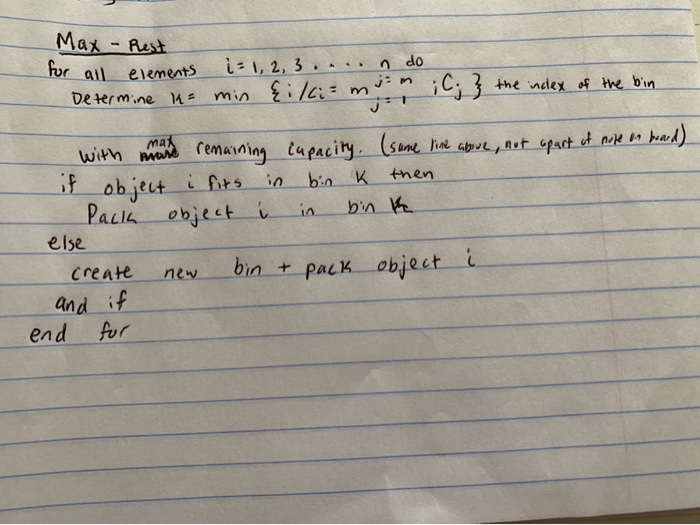 Max - Rest
for all elements i = 1, 2, 3 . . . . n do
Determine K = min { i / ci = m j=m j=1 ; Cj } the index of the bin
with max remaining capacity. (same line above, not apart of note on board)
if object i fits in bin K then
Pack object i in bin K
else
create new bin + pack object i
and if
end for